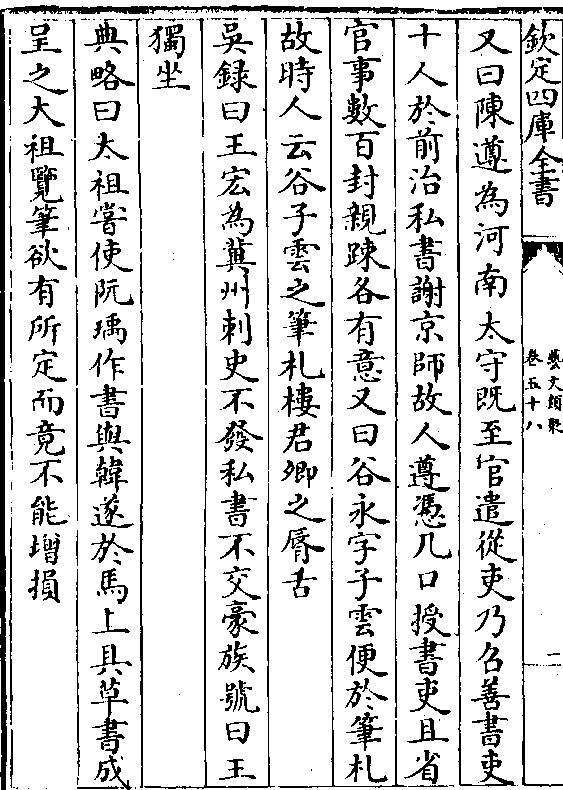 欽定四庫全書
藝文類聚
卷五十八
二
又曰陳遵為河南太守既至官遣從吏乃召善書吏
十人於前治私書謝京師故人遵憑几口授書吏且省
官事數百封親疎各有意又曰谷永字子雲便於筆札
故時人云谷子雲之筆札樓君卿之脣舌
吳録曰王宏為冀州刺史不發私書不交豪族號曰王
獨坐
典略曰太祖嘗使阮瑀作書與韓遂於馬上具草書成
呈之大祖覽筆欲有所定而竟不能增損